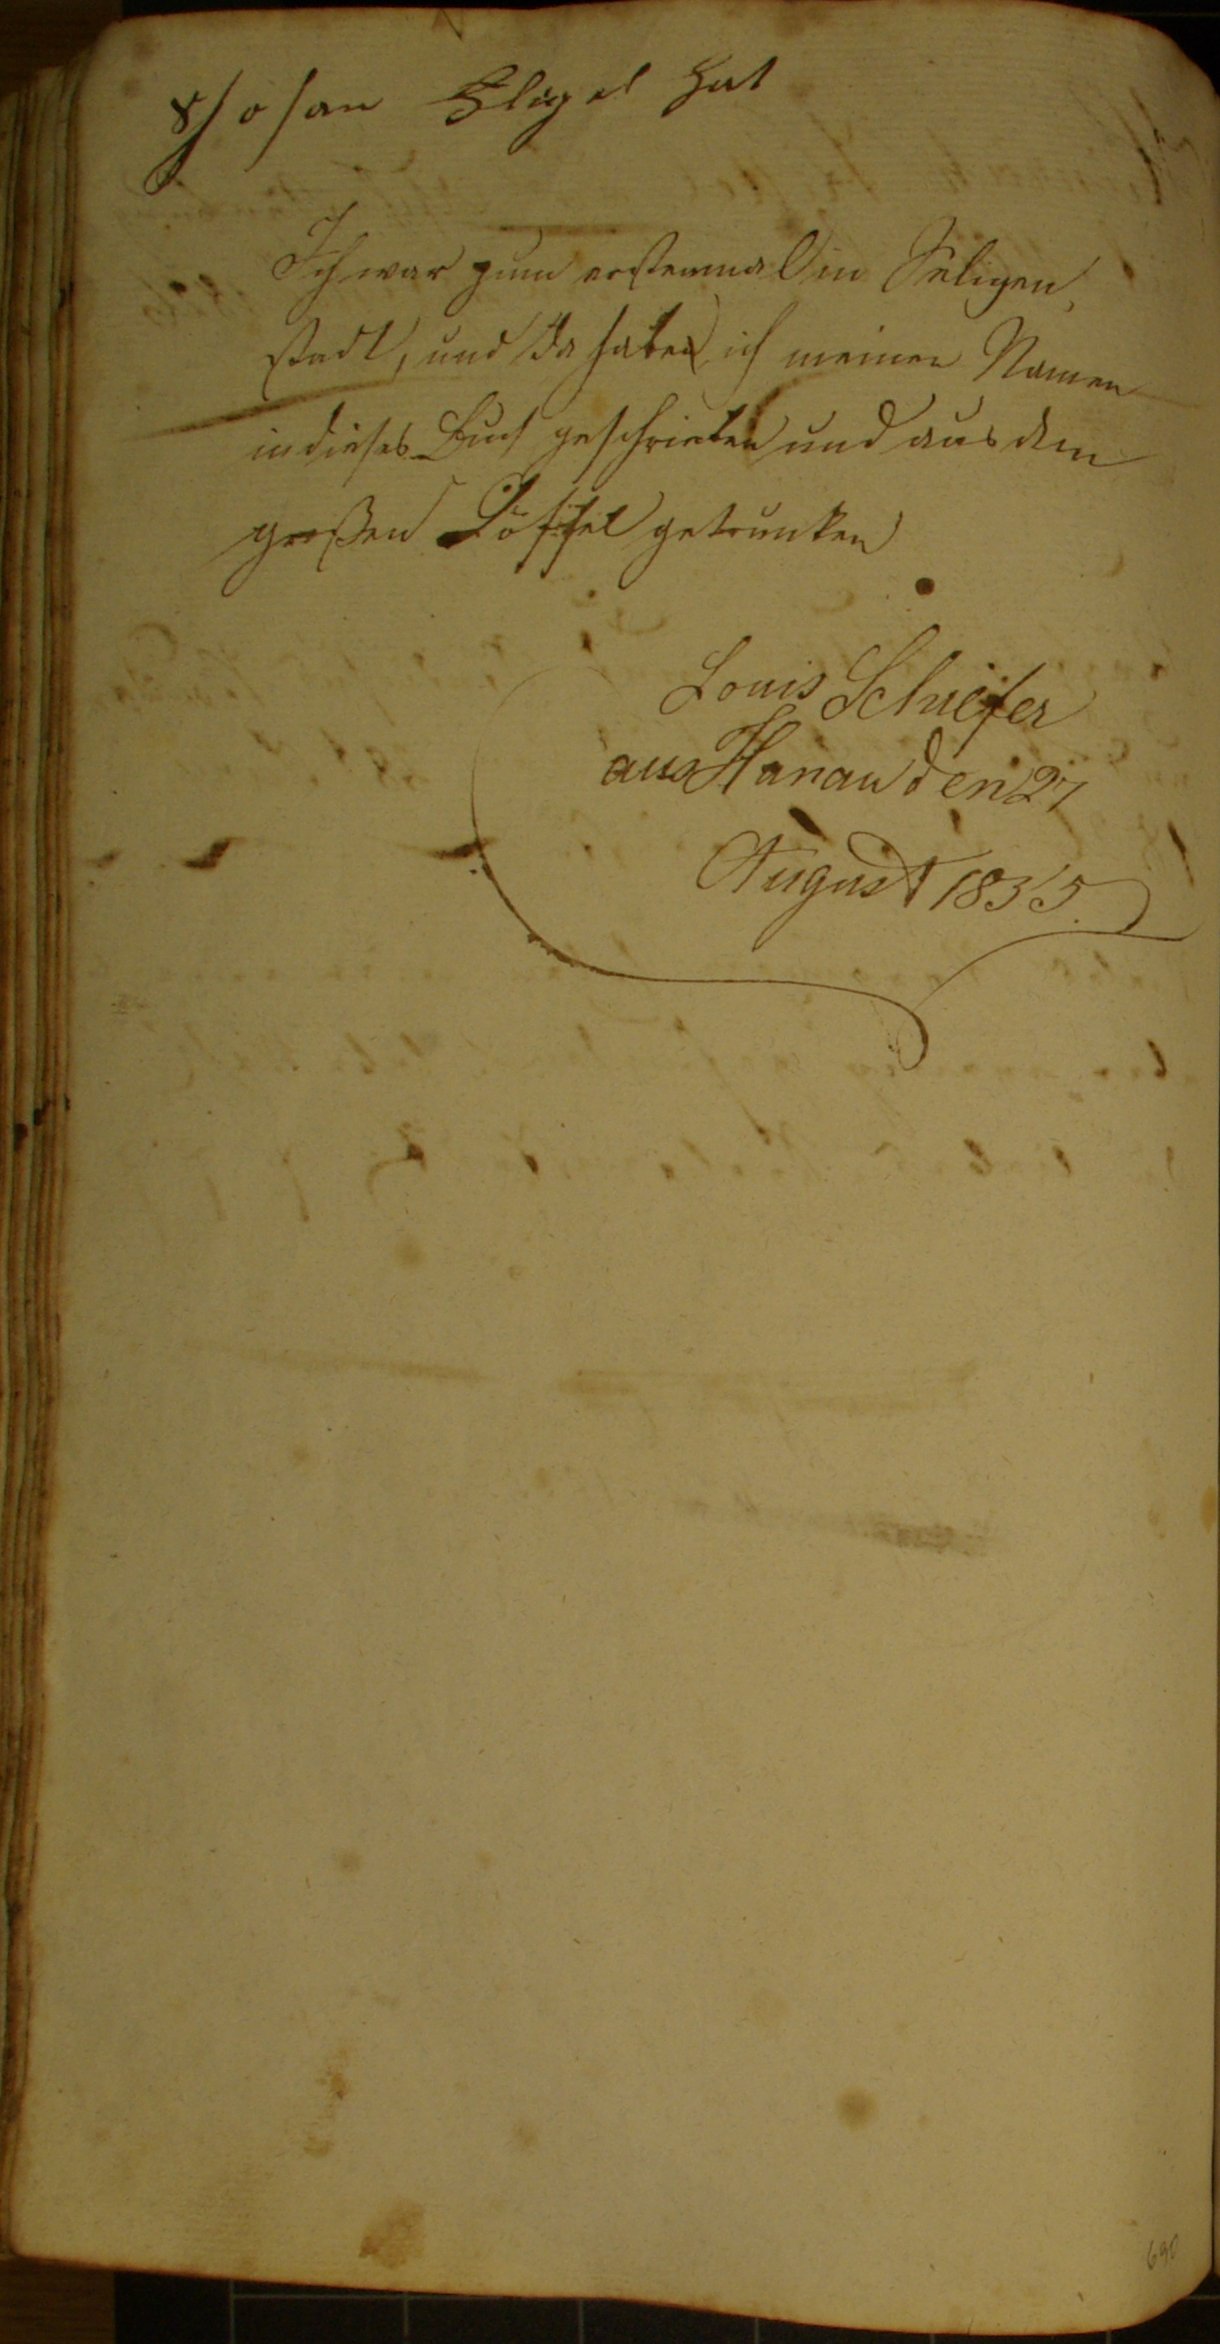 Eligel hat
Ich war zum erstenmal in Seligen
stadt, und da haben ich meinen Namen
in dieses Buch geschrieben und aus dem
großen Löffel getrunken
Louis Schiefer
aus Hanau den 27
August 1835.
690